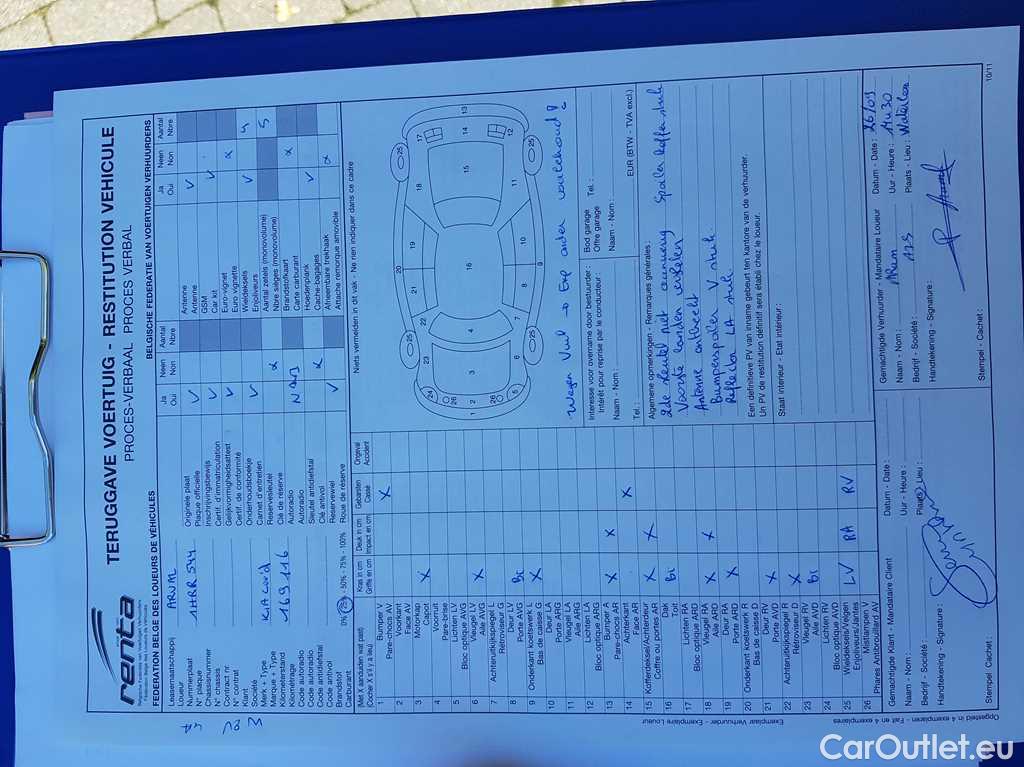 TERUGGAVE VOERTUIG - RESTITUTION VEHICULE
PROCES-VERBAAL PROCES VERBAL
renta
FEDERATION BELGE DES LOUEURS DE VÉHICULES
BELGISCHE FEDERATIE VAN VOERTUIGEN VERHUURDERS
Leasemaatschappij
Loueur
Nummerplaat
N° plaque
1HRR544
Chassisnummer
N° chassis
Contract nr.
N° contrat
Klant
Société
Merk + Type
Marque + Type
Kilometerstand
Kilométrage
169 116
Code autoradio
Code autoradio
Code antidiefstal
Code antivol
Brandstof
Carburant
0% 25% - 50% - 75% - 100%
Ja Neen Aantal
Oui Non Nbre
Originele plaat
Plaque officielle
V
Inschrijvingsbewijs
Certif. d'immatriculation
V
Gelijkvormigheidsattest
Certif. de conformité
V
Onderhoudsboekje
Carnet d'entretien
V
Reservesleutel
Clé de réserve
Autoradio
Autoradio
Sleutel antidiefstal
Clé antivol
Reservewiel
Roue de réserve
V
Ja Neen Aantal
Oui Non Nbre
Antenne
Antenne
V
GSM
Car kit
V
Euro-vignet
Euro vignette
Wieldeksels
Enjoliveurs
V 4
Aantal zetels (monovolume)
Nbre sièges (monovolume)
5
Brandstofkaart
Carte carburant
Hoedenplank
Cache-bagages
V
Afneembare trekhaak
Attache remorque amovible
(Met X aanduiden wat past)
(Cocher X s'il y a lieu)
Kras in cm
Griffe en cm
Deuk in cm
Impact en cm
Gebarsten
Cassé
Ongeval
Accident
1 Bumper V
Pare-chocs AV
X
2 Voorkant
Face AV
3 Motorkap
Capot
X
4 Voorruit
Pare-brise
5 Lichten LV
Bloc optique AVG
6 Vleugel LV
Aile AVG
X
7 Achteruitkijkspiegel L
Rétroviseur G
8 Deur LV
Porte AVG
Bi
9 Onderkant koetswerk L
Bas de caisse G
X
10 Deur LA
Porte ARG
11 Vleugel LA
Aile ARG
12 Lichten LA
Bloc optique ARG
13 Bumper A
Pare-chocs AR
X X
14 Achterkant
Face AR
X
15 Kofferdeksel/Achterdeur
Coffre ou portes AR
X X
16 Dak
Toit
Bi
17 Lichten RA
Bloc optique ARD
18 Vleugel RA
Aile ARD
X X
19 Deur RA
Porte ARD
X
20 Onderkant koetswerk R
Bas de caisse D
21 Deur RV
Porte AVD
X
22 Achteruitkijkspiegel R
Rétroviseur D
X
23 Vleugel RV
Aile AVD
Bi
24 Lichten RV
Bloc optique AVD
25 Wieldeksels/Velgen
Enjoliveurs/Jantes
LV RA RV
26 Mistlampen V
Phares Antibrouillard AV
Niets vermelden in dit vak - Ne rien indiquer dans ce cadre
Wegen Vuil → Exp onder voorbehoud!
Interesse voor overname door bestuurder
Intérêt pour reprise par le conducteur :
Naam - Nom :
Tel. :
Bod garage
Offre garage
Tel. :
Naam - Nom :
EUR (BTW - TVA excl.)
Algemene opmerkingen - Remarques générales :
2de sleutel niet aanwezig
Antenne ontbreekt
Bumperspoiler V stuk
Reflector LA stuk
Een definitieve PV van inname gebeurt ten kantore van de verhuurder.
Un PV de restitution définitif sera établi chez le loueur.
Staat interieur - Etat intérieur :
Gemachtigde Klant - Mandataire Client
Datum - Date :
Naam - Nom :
Uur - Heure :
Bedrijf - Société :
Plaats - Lieu :
Handtekening - Signature :
Stempel - Cachet :
Gemachtigde Verhuurder - Mandataire Loueur
Datum - Date : 26/09
Naam - Nom :
Uur - Heure : 14u30
Bedrijf - Société :
Plaats - Lieu : Waterloo
Handtekening - Signature :
Stempel - Cachet :
Opgesteld in 4 exemplaren - Fait en 4 exemplaires
Exemplaar Verhuurder - Exemplaire Loueur
10/11
CarOutlet.eu